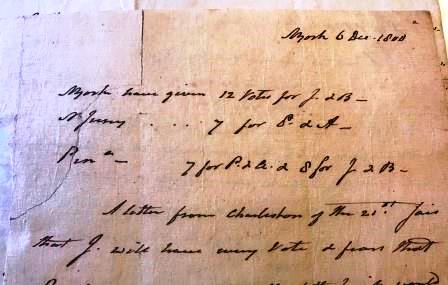 NYork 6 Dec. 1800
NYork have given 12 Votes for J. & B —
N Jersey . . . . 7 for P. & A —
Penn.a — 7 for P. & A. & 8 for J. & B —
A letter from Charleston of the 21st. fears
that J. will have every Vote & fears that